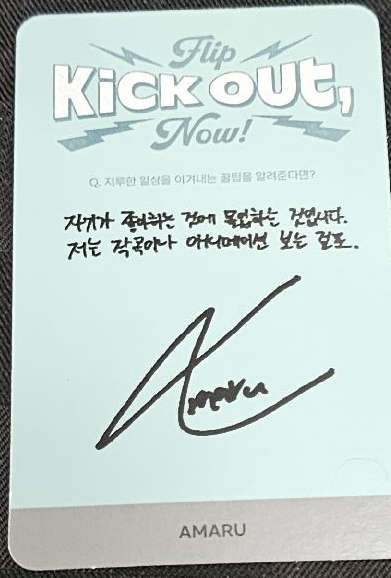 Flip
KICK OUT,
Now!
Q. 지루한 일상을 이겨내는 꿀팁을 알려준다면?
자기가 좋아하는 것에 몰입하는 것입니다.
저는 작곡이나 애니메이션 보는 걸로.
Amaru
AMARU